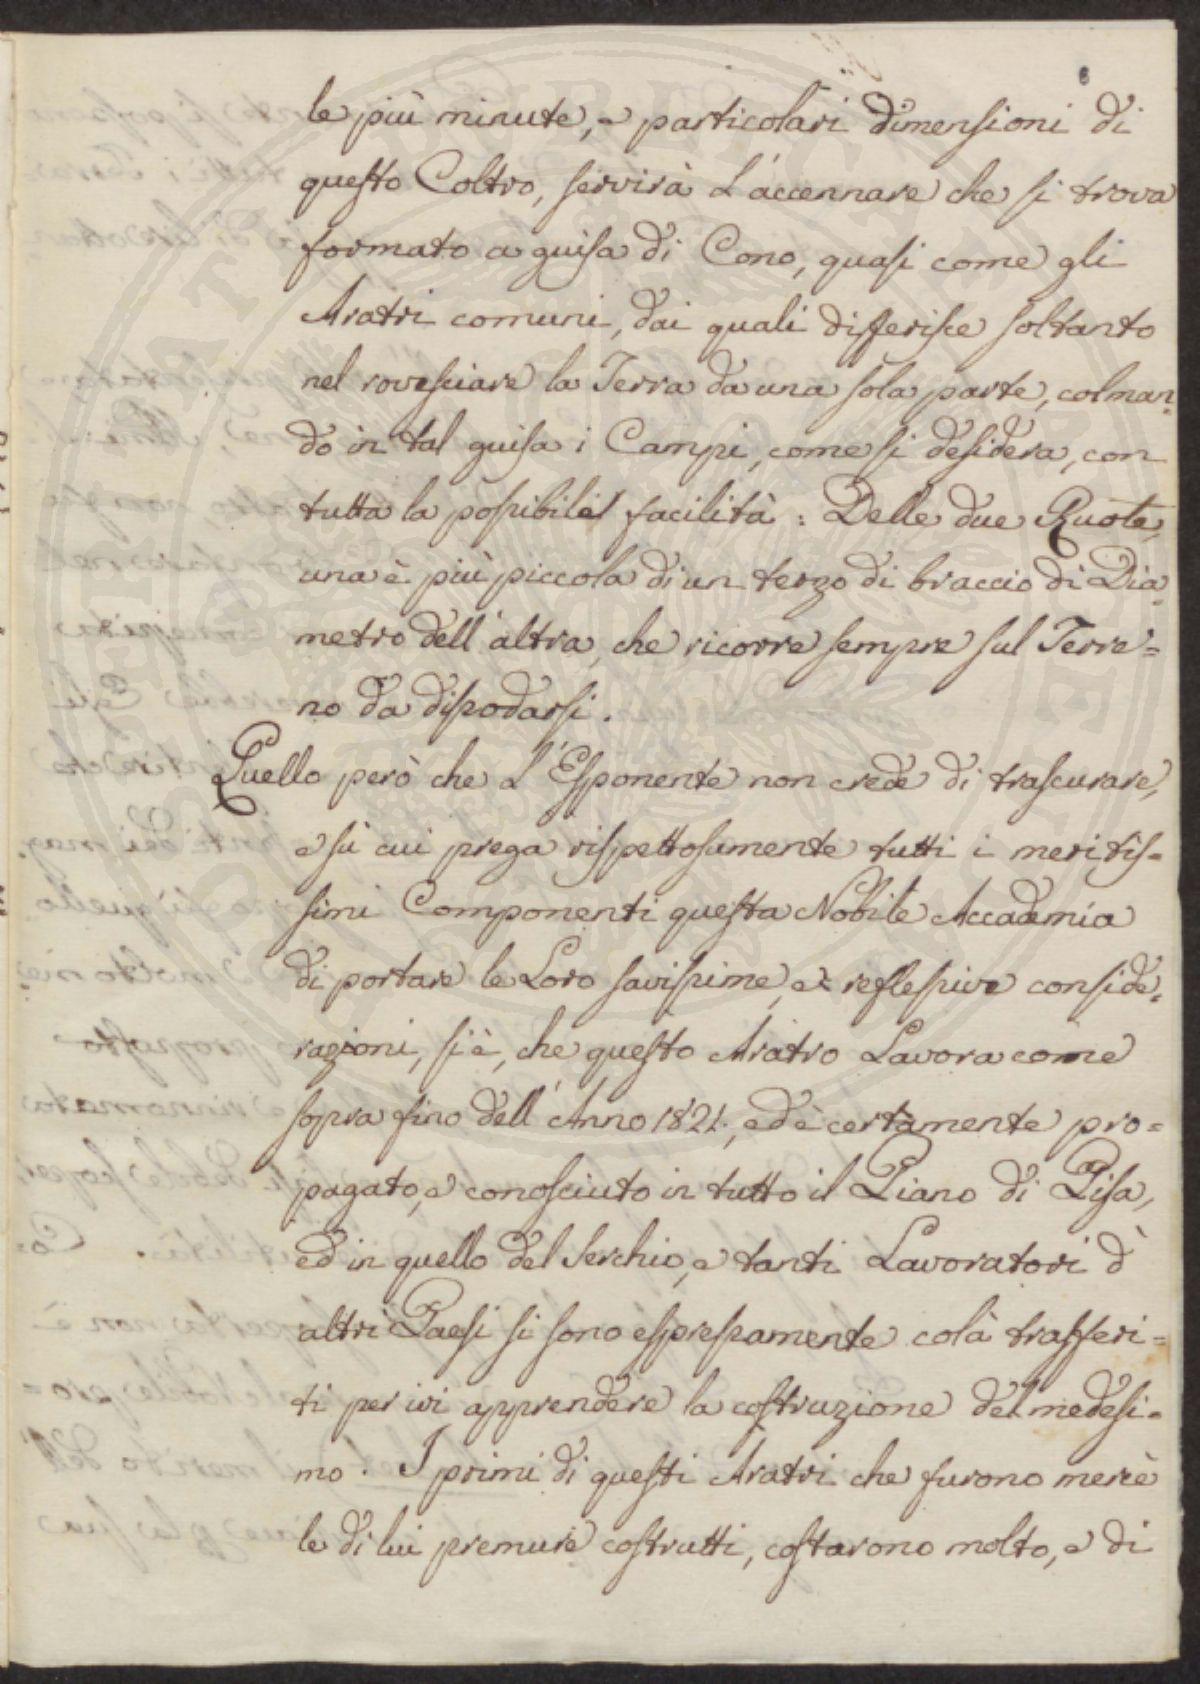 le più minute, e particolari dimensioni di
questo Coltro, servirà l'accennare che si trova
formato a guisa di Cono, quasi come gli
Aratri comuni, dai quali differisce soltanto
nel rovesciare la Terra da una sola parte, colman=
do in tal guisa i Campi, come si desidera, con
tutta la possibile facilità : Delle due Ruote,
una è più piccola di un terzo di braccio di Dia=
metro dell'altra, che ricorre sempre sul Terre=
no da dissodarsi.
Quello però che l'Esponente non crede di trascurare,
e sù cui prega rispettosamente tutti i meritis=
simi Componenti questa Nobile Accademia
di portare le Loro savissime, e reflessive conside=
razioni, si è, che questo Aratro Lavora come
sopra fino dell'Anno 1821., ed è certamente pro=
pagato, e conosciuto in tutto il Piano di Pisa,
ed in quello del Serchio, e tanti Lavoratori d'
altri Paesi si sono espressamente colà trasferi=
ti per ivi apprendere la costruzione del medesi=
mo. I primi di questi Aratri che furono mercè
le di lui premure costrutti, costarono molto, e di